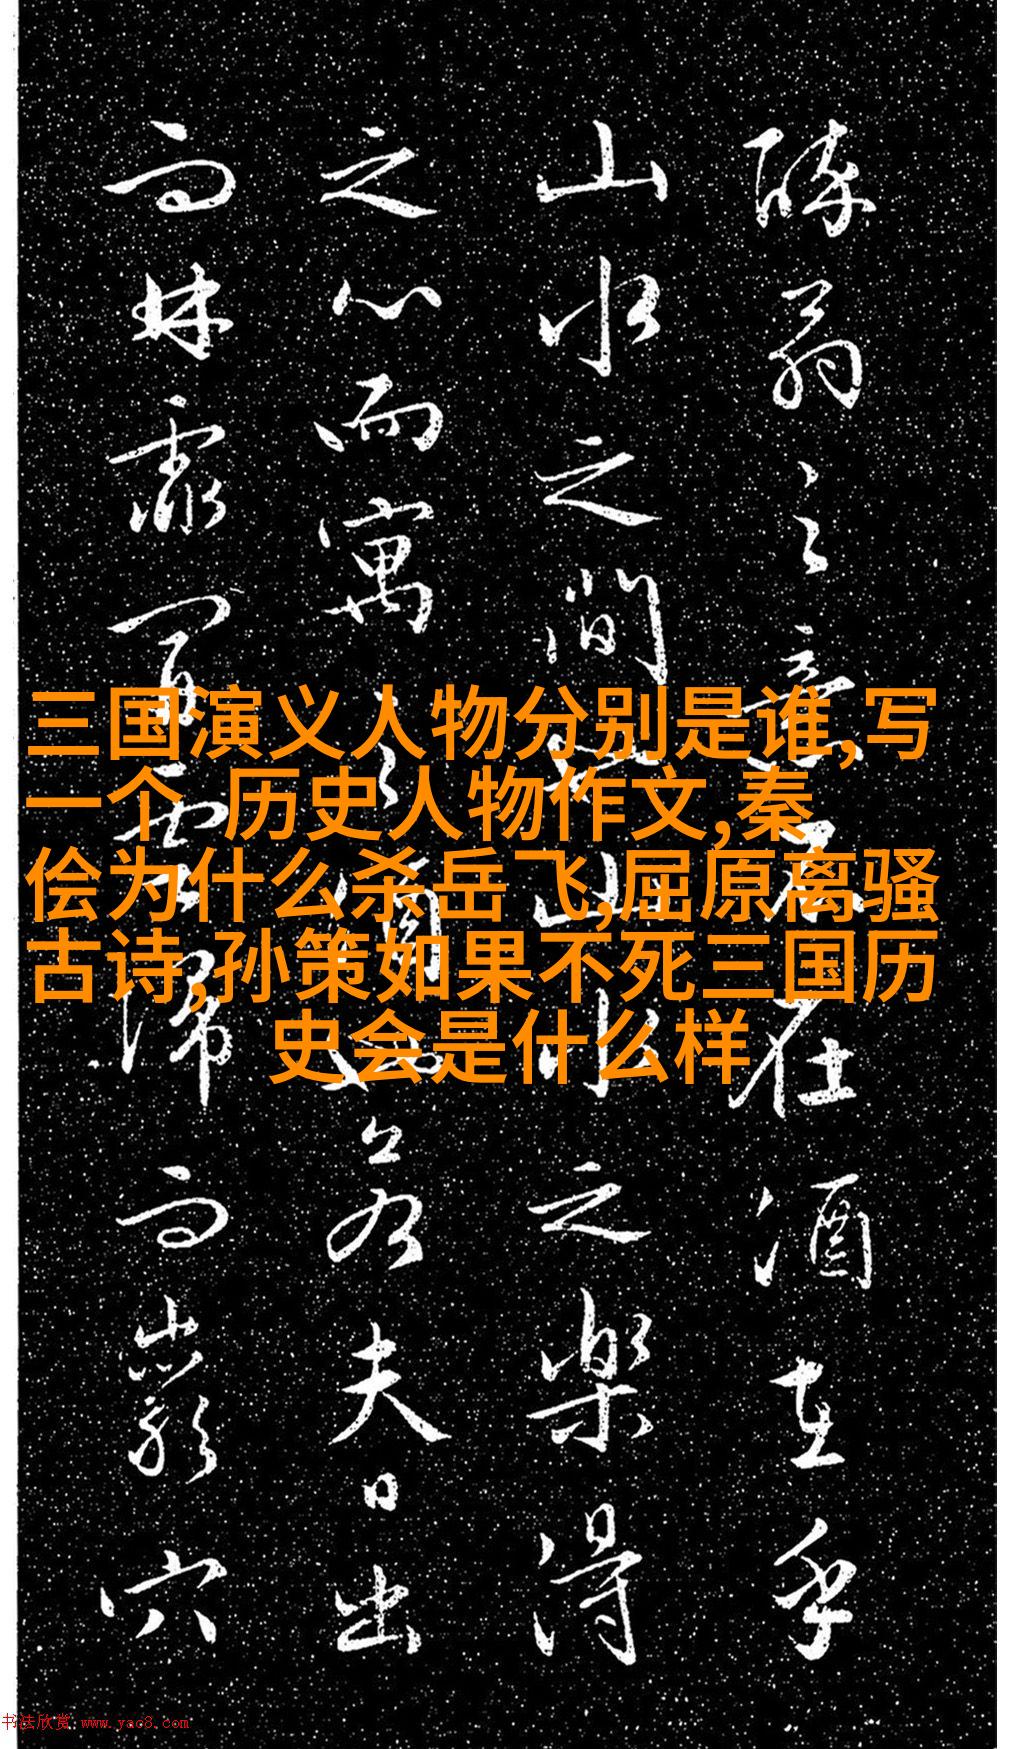 醉翁之意不在酒在乎
山水之間也山水之樂得
之心而寓之酒也若夫日出
而林霏開雲歸而巖穴
三国演义人物分别是谁,写
一个 历史人物作文,秦
侩为什么杀岳 飞,屈原离骚
古诗,孙策如果不死三国历
史会是什么样
书法欣赏 www.yac8.com